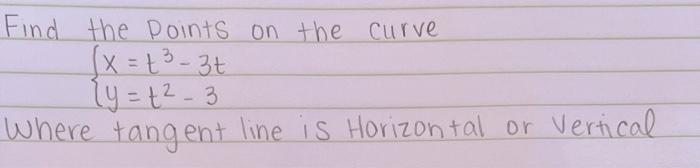 Find the Points on the curve
{x = t³ - 3t
{y = t² - 3
Where tangent line is Horizontal or Vertical